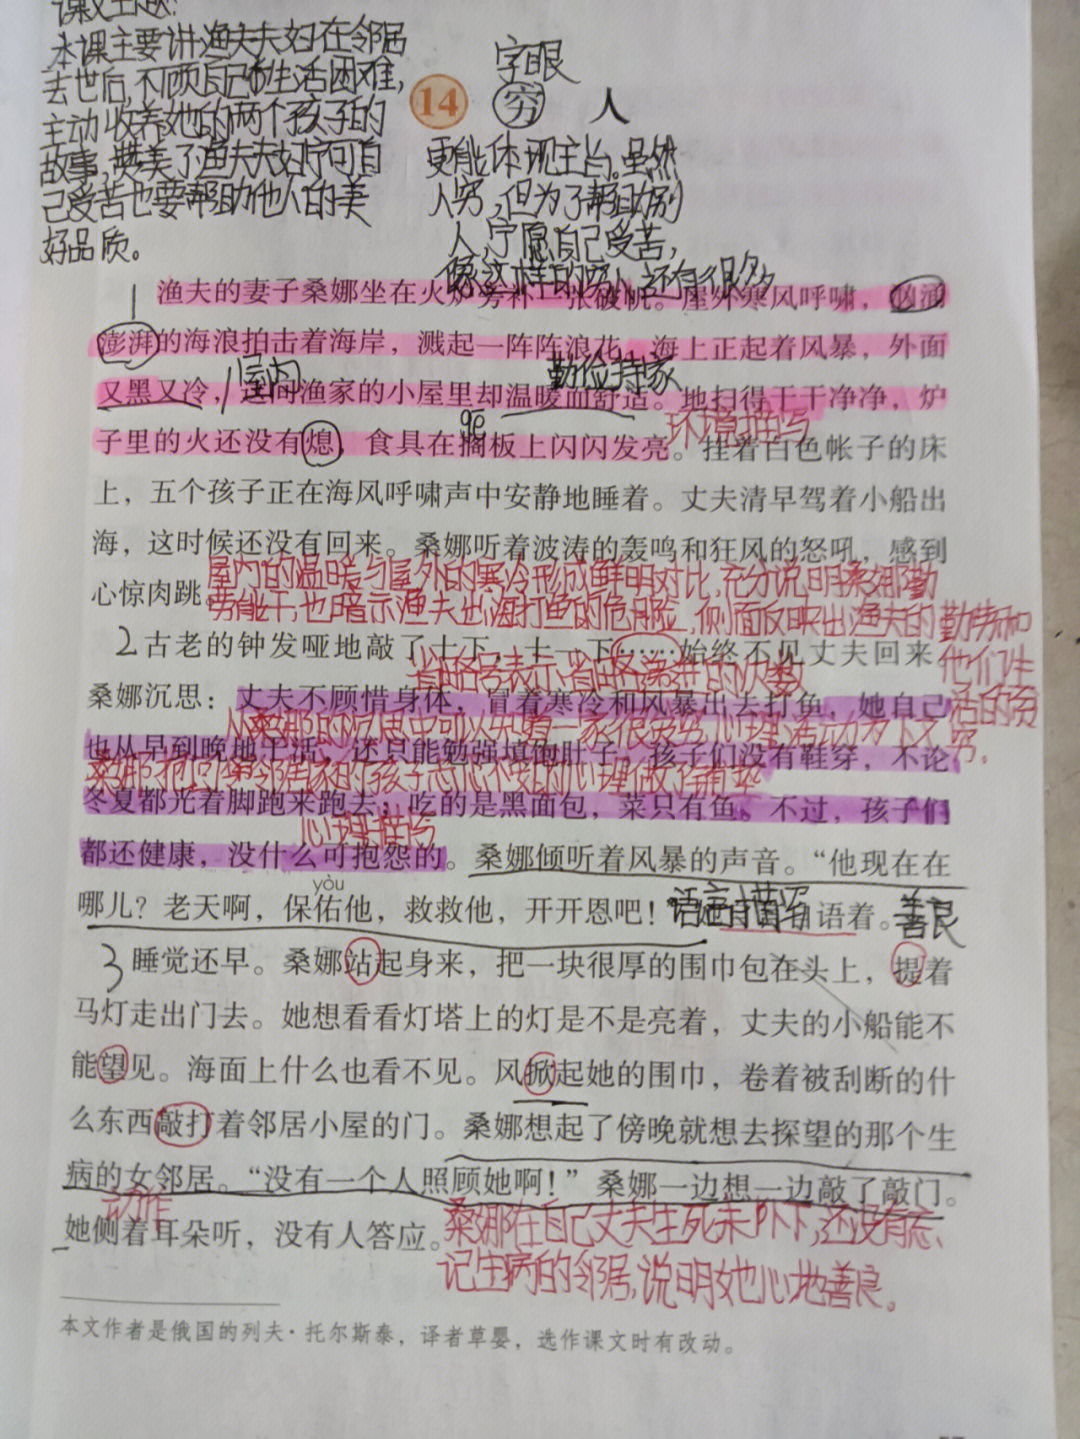 课文主题:
本课主要讲渔夫夫妇在邻居
去世后,不顾自己生活困难,
主动收养她的两个孩子的
故事,赞美了渔夫夫妇宁可自
己受苦也要帮助他人的美
好品质。
字眼
14 穷人
更能体现主旨。虽然
人穷,但为了帮助别
人,宁愿自己受苦,
像这样的穷人还有很多
1 渔夫的妻子桑娜坐在火炉旁补一张破帆。屋外寒风呼啸,汹涌
澎湃的海浪拍击着海岸,溅起一阵阵浪花。海上正起着风暴,外面
屋内 勤俭持家
又黑又冷,这间渔家的小屋里却温暖而舒适。地扫得干干净净,炉
gē 环境描写
子里的火还没有熄,食具在搁板上闪闪发亮。挂着白色帐子的床
上,五个孩子正在海风呼啸声中安静地睡着。丈夫清早驾着小船出
海,这时候还没有回来。桑娜听着波涛的轰鸣和狂风的怒吼,感到
心惊肉跳。
屋内的温暖与屋外的寒冷形成鲜明对比,充分说明桑娜勤
劳能干,也暗示渔夫出海打鱼的危险,侧面反映出渔夫的勤劳和
他们生
活的贫
穷。
2 古老的钟发哑地敲了十下,十一下……始终不见丈夫回来。
省略号表示省略递进的次数
桑娜沉思:丈夫不顾惜身体,冒着寒冷和风暴出去打鱼,她自己
从桑娜的沉思中可以知道一家很贫穷,心理活动为下文
也从早到晚地干活,还只能勉强填饱肚子。孩子们没有鞋穿,不论
桑娜抱回邻居家的孩子忐忑不安的心理做铺垫
冬夏都光着脚跑来跑去;吃的是黑面包,菜只有鱼。不过,孩子们
心理描写
都还健康,没什么可抱怨的。桑娜倾听着风暴的声音。“他现在在
yòu
哪儿?老天啊,保佑他,救救他,开开恩吧!”她自言自语着。
语言描写 善良
3 睡觉还早。桑娜站起身来,把一块很厚的围巾包在头上,提着
马灯走出门去。她想看看灯塔上的灯是不是亮着,丈夫的小船能不
能望见。海面上什么也看不见。风掀起她的围巾,卷着被刮断的什
么东西敲打着邻居小屋的门。桑娜想起了傍晚就想去探望的那个生
病的女邻居。“没有一个人照顾她啊!”桑娜一边想一边敲了敲门。
动作
她侧着耳朵听,没有人答应。
桑娜在自己丈夫生死未卜下,还没有忘
记生病的邻居,说明她心地善良。
本文作者是俄国的列夫·托尔斯泰,译者草婴,选作课文时有改动。